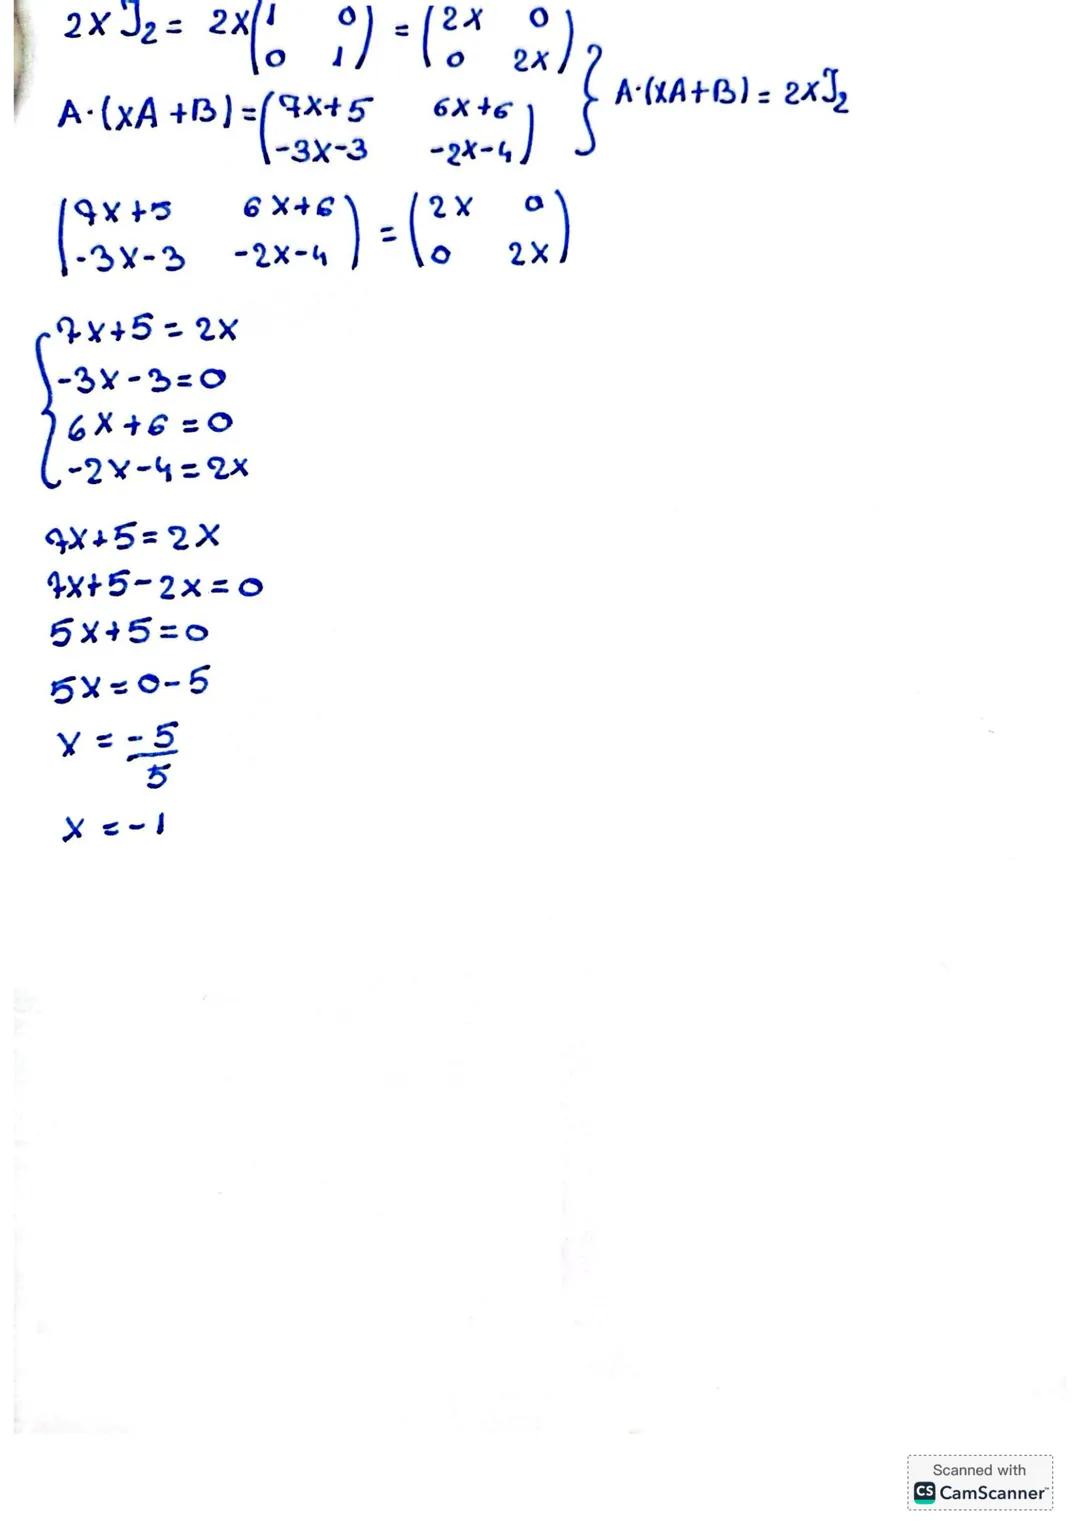 2x I₂ = 2x(1 0 / 0 1) = (2x 0 / 0 2x)
A·(xA+B) = (7x+5 6x+6 / -3x-3 -2x-4) } A·(xA+B) = 2xI₂
(7x+5 6x+6 / -3x-3 -2x-4) = (2x 0 / 0 2x)
{ 7x+5=2x
-3x-3=0
6x+6=0
-2x-4=2x
7x+5=2x
7x+5-2x=0
5x+5=0
5x=0-5
x = -5/5
x = -1
Scanned with
CS CamScanner